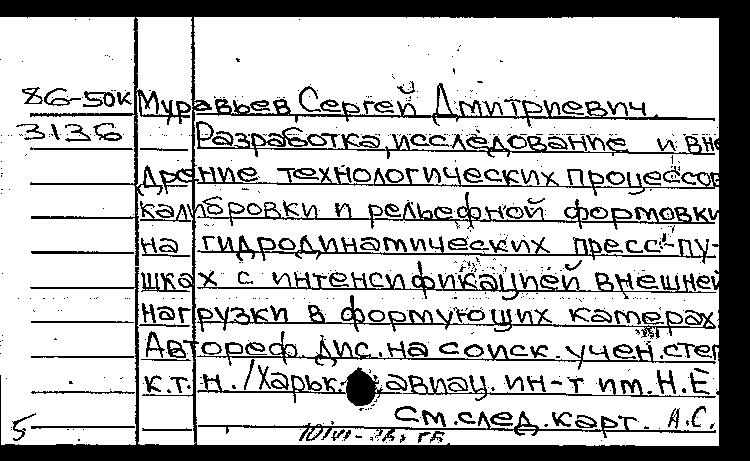 86-50К Муравьев, Сергей Дмитриевич.
3138 Разработка, исследование и вне
дрение технологических процессов
калибровки и рельефной формовки
на гидродинамических пресс-пу-
шках с интенсификацией внешней
нагрузки в формующих камерах:
Автореф. дис. на соиск. учен. степ
к.т.н. /Харьк. авиац. ин-т им. Н.Е.
см. след. карт. А.С.
5